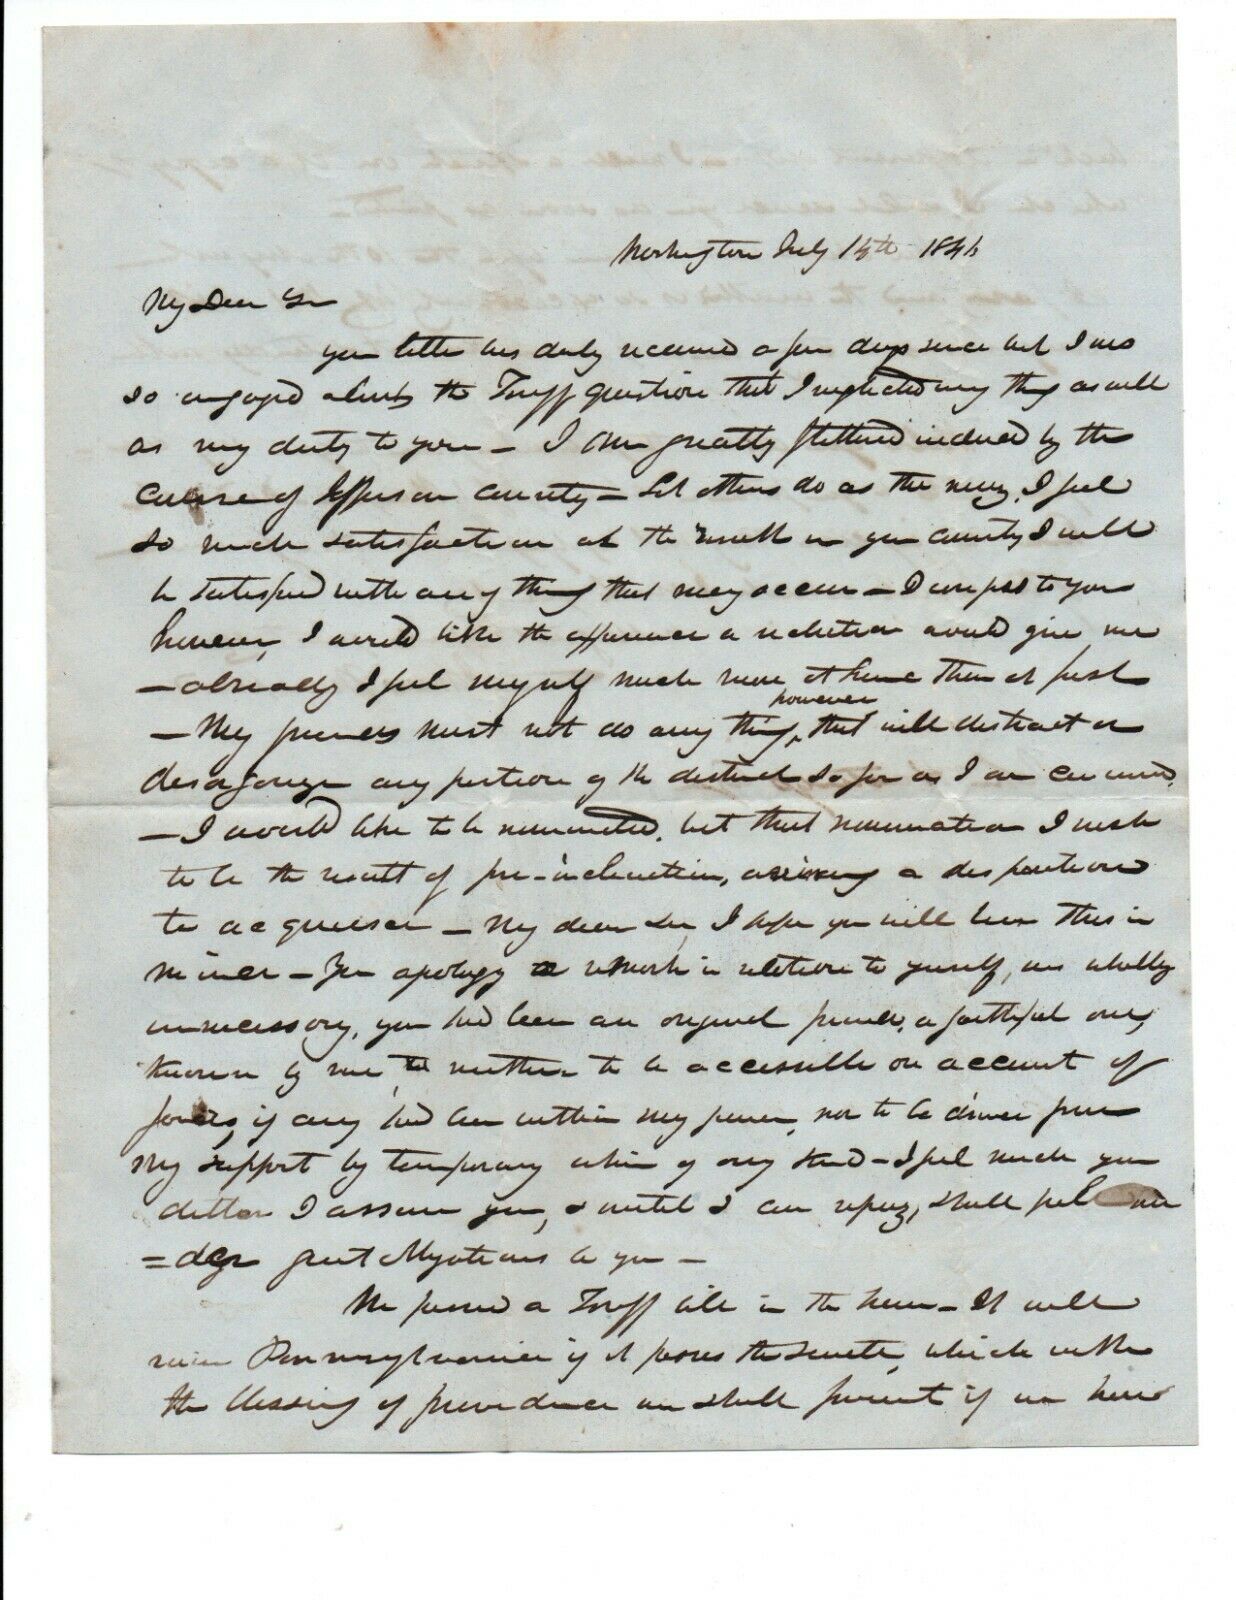 Washington July 14th 1846
My Dear Sir
your letter was duly received a few days since but I was
so engaged about the Tariff question that I neglected every thing as well
as my duty to you – I am greatly flattered indeed by the
course of Jefferson county – Let others do as they may, I feel
so much satisfaction at the result in your county I will
be satisfied with any thing that may occur – I confess to you
however, I would like the a reelection would give me
– already I feel myself much more at home than at first
– My friends must not do any thing, however that will distract or
disorganize any portion of the district so far as I am concerned,
– I would like to be nominated, but that nomination I wish
to be the result of pre-inclination, a disposition
to acquiesce – My dear Sir, I hope you will bear this in
mind – Your apology or remark in relation to yourself, was wholly
unnecessary, you had been an original friend, a faithful one,
known by me, neither to be accessible on account of
favors, if any had been within my power, nor to be driven from
my support by temporary whim of any kind – I feel much your
debtor I assure you, & until I can repay, shall feel
= der great obligations to you –
We passed a Tariff bill in the house – It will
ruin Pennsylvania if it passes the Senate, which with
the blessing of providence we shall prevent if we have